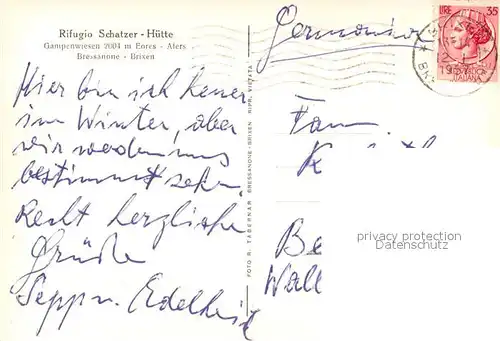 Rifugio Schatzer - Hütte
Gampenwiesen 2004 m Eores - Afers
Bressanone - Brixen
Germania
LIRE 35
Hier bin ich heuer
im Winter, aber
wir werden uns
bestimmt sehen.
Recht herzliche
Grüße
Sepp u. Edelheid
FOTO R. TABERNAR BRESSANONE-BRIXEN RIPR. VIETATA
Fam.
K
Be
Wall
privacy protection
Datenschutz